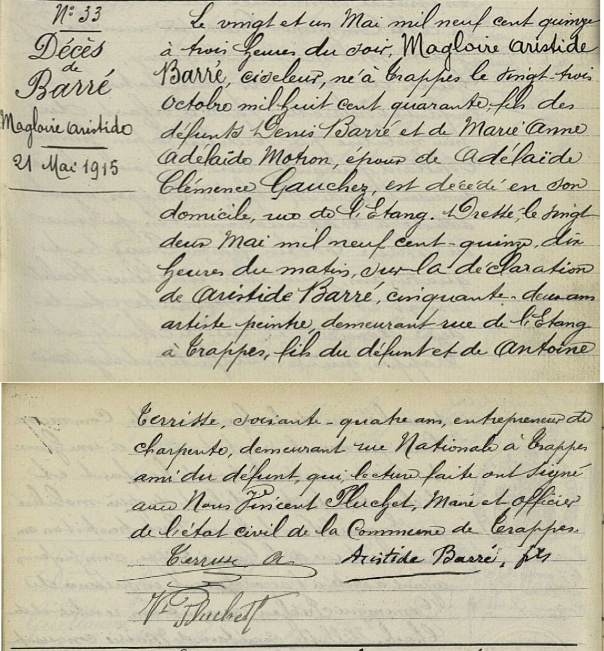 N° 33
Décès
de
Barré
Magloire Aristide
21 Mai 1915
Le vingt et un Mai mil neuf cent quinze
à trois heures du soir, Magloire Aristide
Barré, ciseleur, né à Trappes le vingt trois
Octobre mil huit cent quarante, fils des
défunts Denis Barré et de Marie Anne
Adélaïde Motron, époux de Adélaïde
Clémence Gauchez, est décédé en son
domicile, rue de l'Etang. Dressé, le vingt
deux Mai mil neuf cent-quinze, dix
heures du matin, sur la déclaration
de Aristide Barré, cinquante-deux ans
artiste peintre, demeurant rue de l'Etang
à Trappes, fils du défunt et de Antoine
Terrisse, soixante-quatre ans, entrepreneur de
charpente, demeurant rue Nationale à Trappes
ami du défunt, qui, lecture faite ont signé
avec Nous Vincent Pluchet, Maire et officier
de l'état civil de la Commune de Trappes
Terrisse A
Aristide Barré, fils
Vt Pluchet